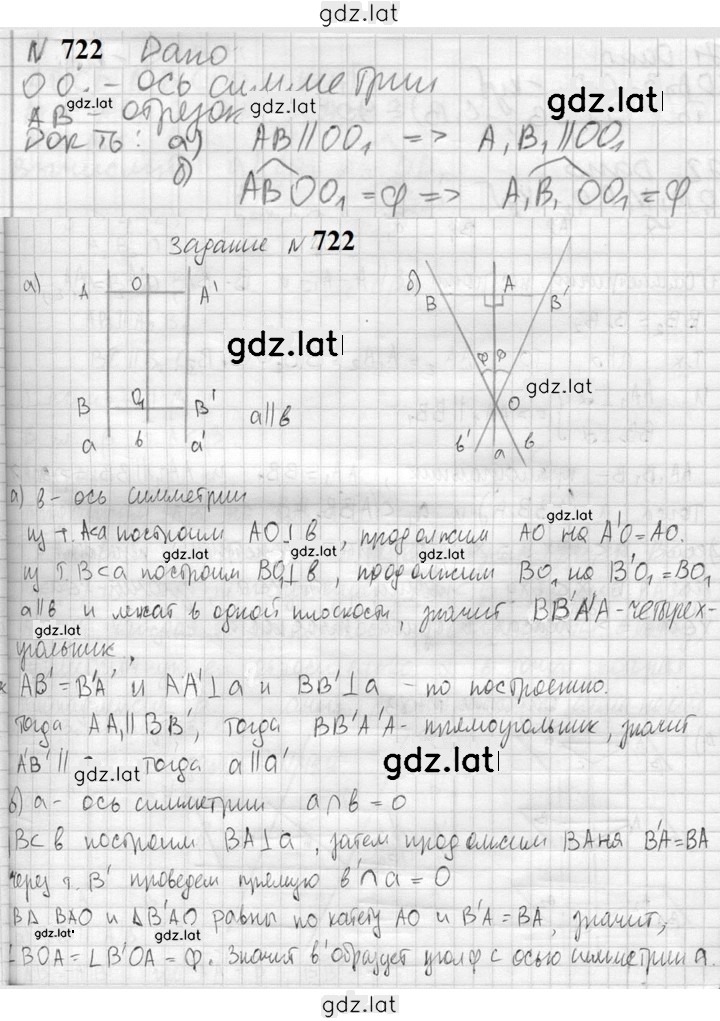 gdz.lat
N 722 Дано
OO₁ - ось симметрии
gdz.lat
AB - отрезок
gdz.lat
Док ть: а) AB || OO₁ => A₁B₁ || OO₁
б) ABOO₁ = φ => A₁B₁ OO₁ = φ
Задание N 722
а) A O A' б) A B B'
gdz.lat
φ φ
gdz.lat
B O₁ B' a||в O
a в a' в' a в
а) в - ось симметрии
gdz.lat
из т. A<a построим AO⊥в, продолжим AO на A'O=AO.
gdz.lat gdz.lat gdz.lat
из т. B<a построим BO₁⊥в, продолжим BO₁ на B'O₁=BO₁
a||в и лежат в одной плоскости, значит BB'A'A - четырех-
gdz.lat
угольник,
AB'=B'A' и AA'⊥a и BB'⊥a - по построению.
тогда AA₁||BB', тогда BB'A'A - прямоугольник, значит
A'B' || тогда a||a'
gdz.lat gdz.lat
б) a - ось симметрии a∩в=O
B⊂в построим BA⊥a, затем продолжим BA ня B'A=BA
через т. B' проведем прямую в'∩a=O
ВΔ BAO и ΔB'AO равны по катету AO и B'A=BA, значит,
gdz.lat gdz.lat
∠BOA=∠B'OA=φ. Значит в' образует угол φ с осью симметрии a.
gdz.lat